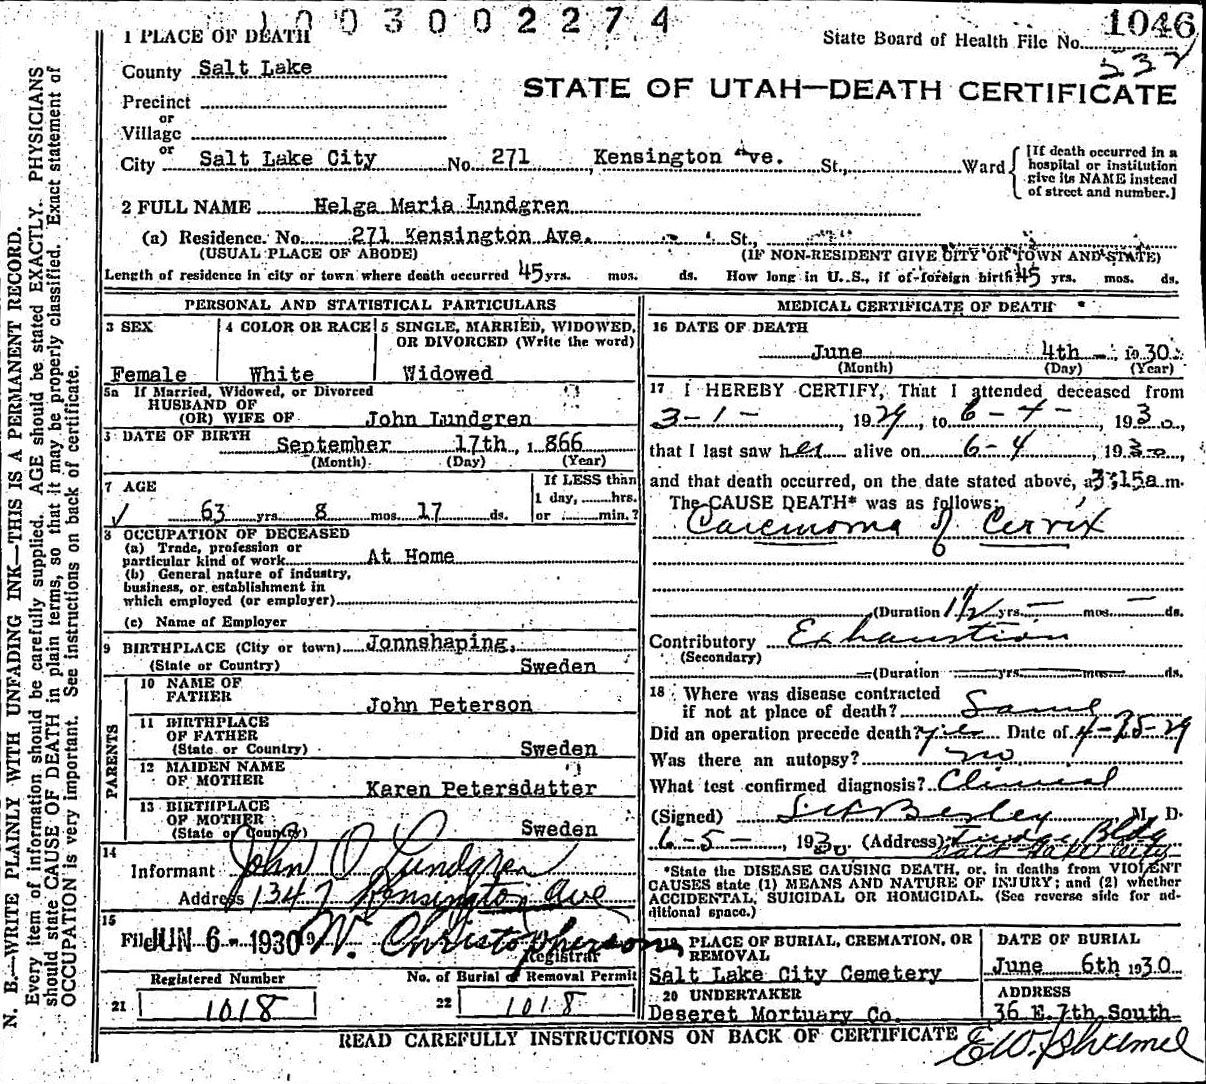 1003002274
1046
State Board of Health File No.
537
1 PLACE OF DEATH
County Salt Lake
STATE OF UTAH—DEATH CERTIFICATE
Precinct
or
Village
or
City Salt Lake City No. 271 Kensington Ave. St., Ward
[If death occurred in a
hospital or institution
give its NAME instead
of street and number.]
2 FULL NAME Helga Maria Lundgren
(a) Residence. No. 271 Kensington Ave. St.,
(USUAL PLACE OF ABODE) (IF NON-RESIDENT GIVE CITY OR TOWN AND STATE)
Length of residence in city or town where death occurred 45 yrs. mos. ds. How long in U. S., if of foreign birth 45 yrs. mos. ds.
PERSONAL AND STATISTICAL PARTICULARS
3 SEX 4 COLOR OR RACE 5 SINGLE, MARRIED, WIDOWED,
OR DIVORCED (Write the word)
Female White Widowed
5a If Married, Widowed, or Divorced
HUSBAND OF
(OR) WIFE OF John Lundgren
DATE OF BIRTH
September 17th, 1866
(Month) (Day) (Year)
7 AGE If LESS than
1 day, hrs.
63 yrs. 8 mos. 17 ds. or min.?
8 OCCUPATION OF DECEASED
(a) Trade, profession or
particular kind of work At Home
(b) General nature of industry,
business, or establishment in
which employed (or employer)
(c) Name of Employer
9 BIRTHPLACE (City or town) Jonnshaping,
(State or Country) Sweden
PARENTS
10 NAME OF
FATHER John Peterson
11 BIRTHPLACE
OF FATHER
(State or Country) Sweden
12 MAIDEN NAME
OF MOTHER Karen Petersdatter
13 BIRTHPLACE
OF MOTHER
(State or Country) Sweden
14
Informant John O Lundgren
Address 1347 Kensington Ave
15
Filed JUN 6 - 1930 W. Christopherson
Registrar
Registered Number No. of Burial or Removal Permit
21 1018 22 1018
MEDICAL CERTIFICATE OF DEATH
16 DATE OF DEATH
June 4th 1930
(Month) (Day) (Year)
17 I HEREBY CERTIFY, That I attended deceased from
3-1- 1929, to 6-4- 1930,
that I last saw her alive on 6-4, 1930,
and that death occurred, on the date stated above, at 3:15a m.
The CAUSE DEATH* was as follows:
Carcinoma of Cervix
(Duration 1 1/2 yrs. - mos. - ds.
Contributory Exhaustion
(Secondary)
(Duration yrs. mos. ds.
18 Where was disease contracted
if not at place of death? Same
Did an operation precede death? yes Date of 4-25-29
Was there an autopsy? no
What test confirmed diagnosis? Clinical
(Signed) M. D.
6-5-, 1930. (Address) Bldg
Salt Lake City
*State the DISEASE CAUSING DEATH, or, in deaths from VIOLENT
CAUSES state (1) MEANS AND NATURE OF INJURY; and (2) whether
ACCIDENTAL, SUICIDAL OR HOMICIDAL. (See reverse side for ad-
ditional space.)
19 PLACE OF BURIAL, CREMATION, OR
REMOVAL
Salt Lake City Cemetery
DATE OF BURIAL
June 6th 1930
20 UNDERTAKER
Deseret Mortuary Co.
ADDRESS
36 E. 7th South
READ CAREFULLY INSTRUCTIONS ON BACK OF CERTIFICATE
N. B.—WRITE PLAINLY WITH UNFADING INK—THIS IS A PERMANENT RECORD.
Every item of information should be carefully supplied. AGE should be stated EXACTLY. PHYSICIANS
should state CAUSE OF DEATH in plain terms, so that it may be properly classified. Exact statement of
OCCUPATION is very important. See instructions on back of certificate.